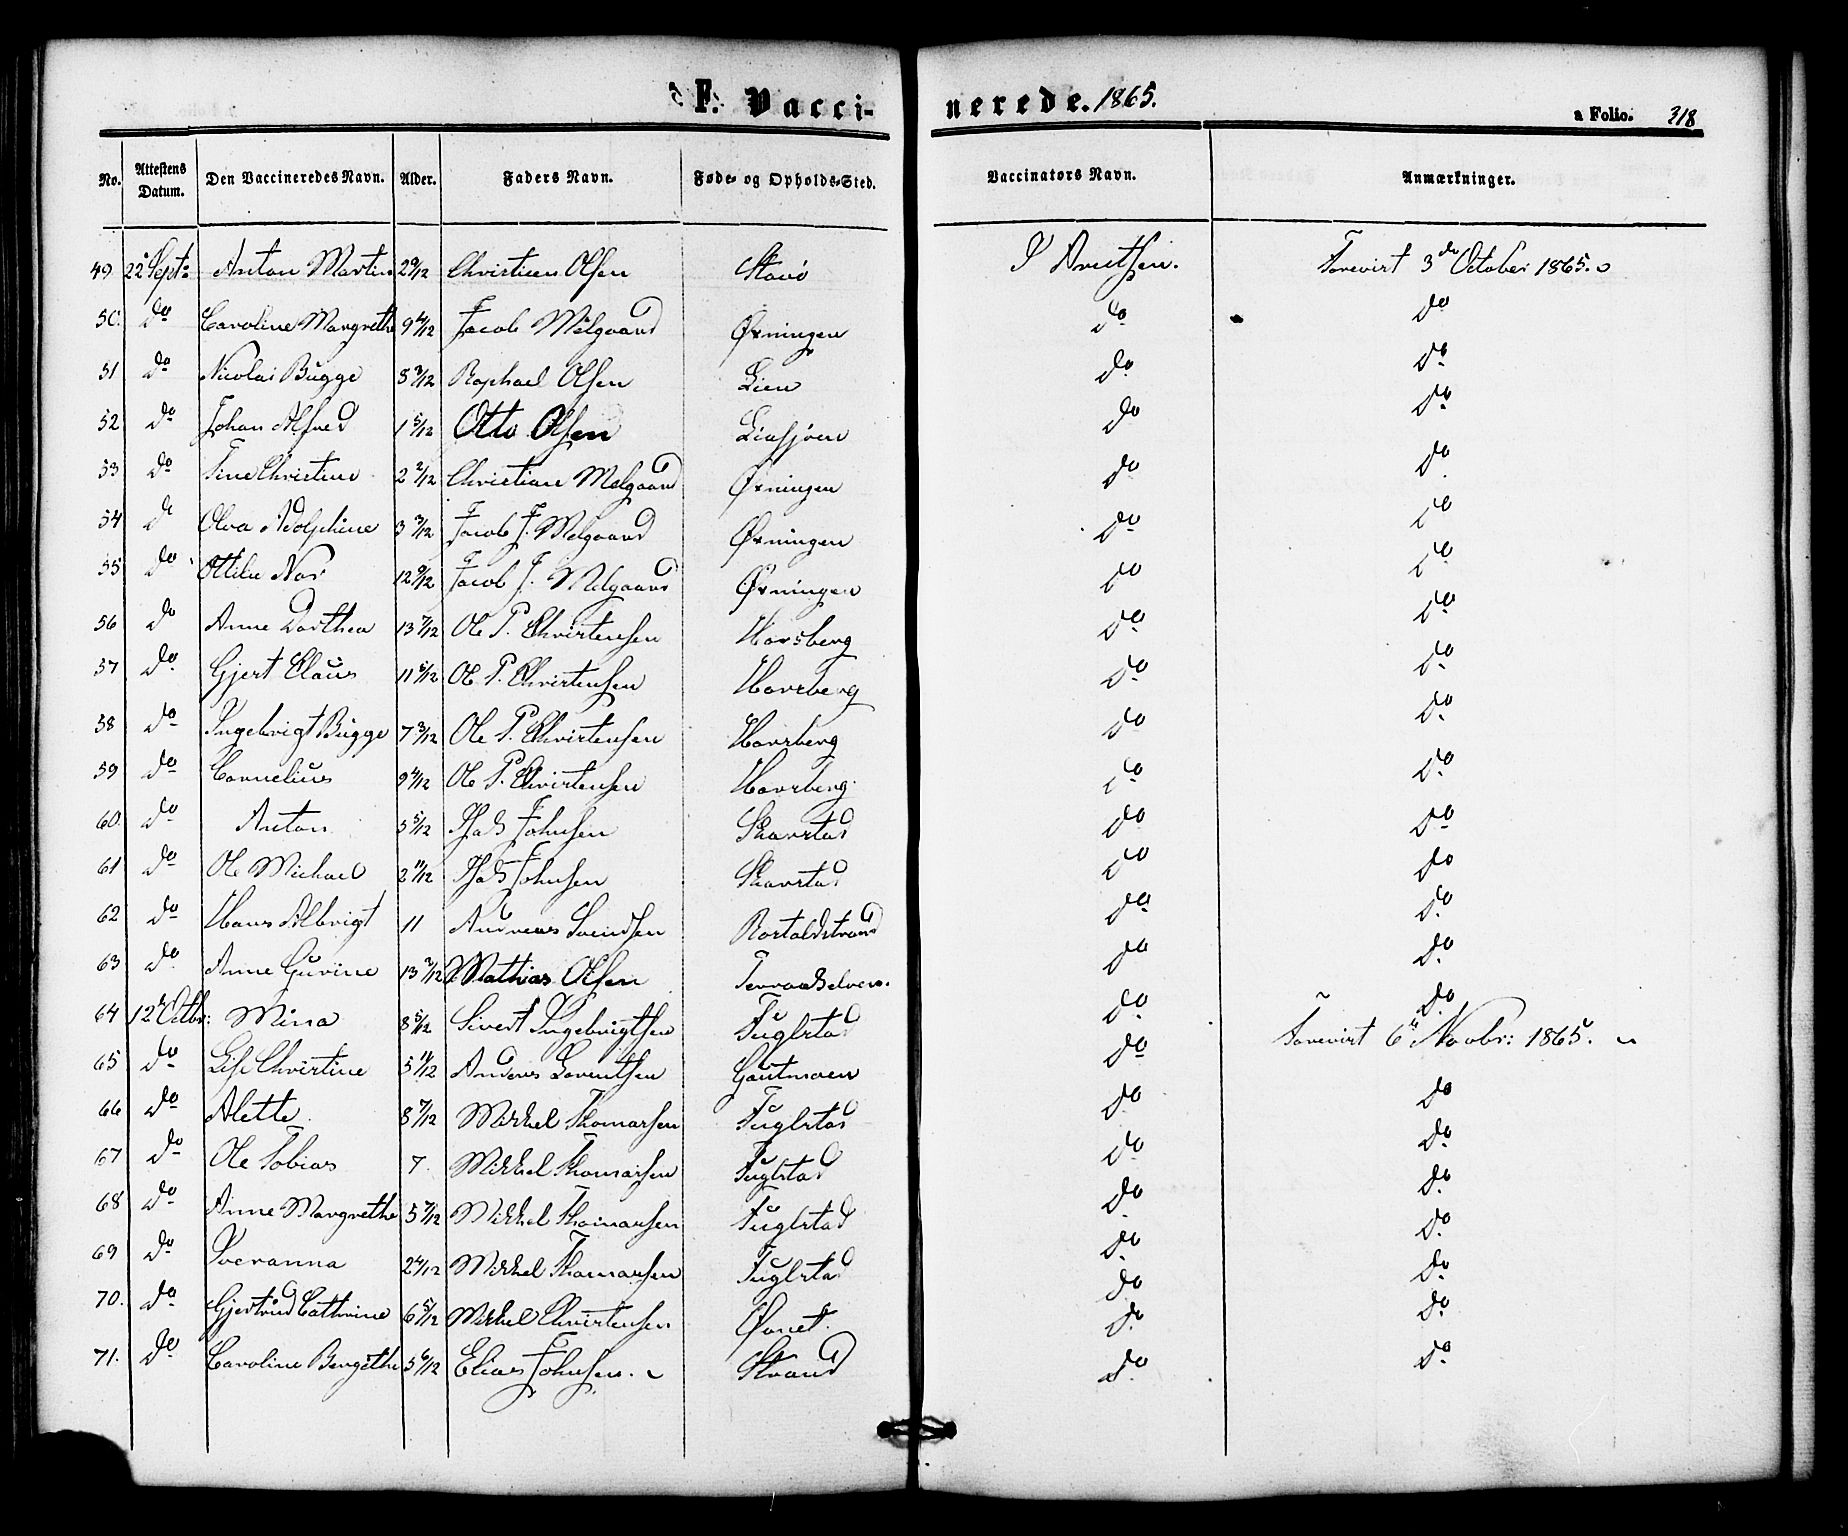 F. Vaccinerede. 1865.
a Folio. 318
No. Attestens Datum. Den Vaccineredes Navn. Alder. Faders Navn. Føde- og Opholds-Sted. Vaccinators Navn. Anmærkninger.
49 22 Sept: Anton Martin Christian Olsen Torevist 3die October 1865.
50. do Caroline Margrethe 9 4/12 Jacob Melgaard Øxningen do do
51 do Nicolai Bugge 5 3/12 Raphael Olsen Lien do do
52 do Johan Alfred 1 5/12 Otto Olsen do do
53 do Tine Christine 2 2/12 Christian Melgaard Øxningen do do
54 do Olva Adolphine 3 3/12 Jacob J. Melgaard Øxningen do do
55 do Jacob J. Melgaard Øxningen do do
56 do Anne Dorthea 13 7/12 Ole P. Christensen Horsberg do do
57 do Gjert Claus 11 6/12 Ole P. Christensen Horsberg do do
58 do Ingebrigt Bugge 7 3/12 Ole P. Christensen Horsberg do do
59 do Cornelius 9/12 Ole P. Christensen Horsberg do do
60 do Anton 5 5/12 Johnsen Skarstad do do
61 do Ole Michael 2 11/12 Johnsen Skarstad do do
62 do Hans Albrigt 11 Andreas Svendsen do do
63 do Anne Gurine 13 2/12 Mathias Olsen do do
64 12 Octbr: Mina 8 5/12 Sivert Ingebrigtsen Fuglstad do do
65 do Lise Christine 5 11/12 Anders Lorentsen Gautmoen do Torevist 6te Novbr: 1865.
66 do Alette 8 7/12 Mikkel Thomassen Fuglstad do do
67 do Ole Tobias 7 Mikkel Thomassen Fuglstad do do
68 do Anne Margrethe 5 7/12 Mikkel Thomassen Fuglstad do do
69 do Mikkel Thomassen Fuglstad do do
70. do Gjertrud Cathrine 6 5/12 Mikkel Christensen Øvnet. do do
71. do Caroline Bergithe 5 6/12 Elias Johnsen. Strand do do